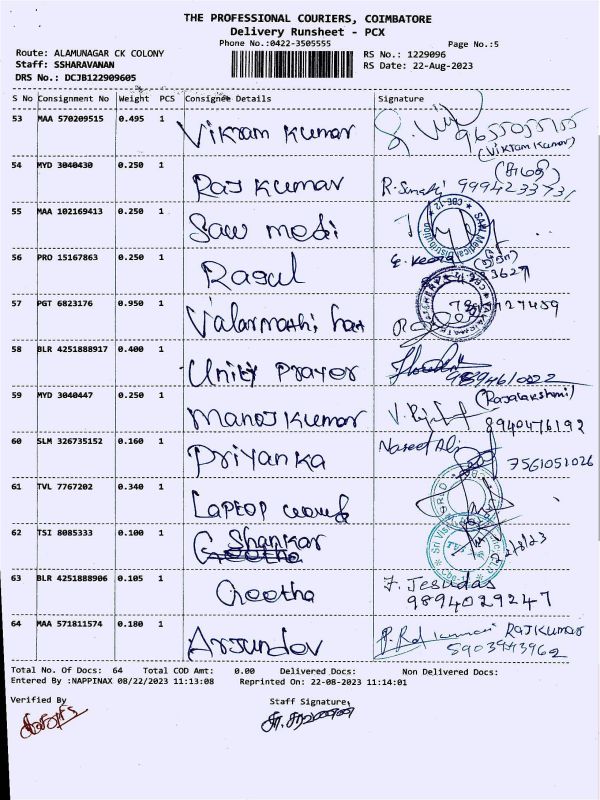 THE PROFESSIONAL COURIERS, COIMBATORE
Delivery Runsheet - PCX
Phone No.:0422-3505555 Page No.:5
Route: ALAMUNAGAR CK COLONY
Staff: SSHARAVANAN
DRS No.: DCJB122909605
RS No.: 1229096
RS Date: 22-Aug-2023
S No Consignment No Weight PCS Consignee Details Signature
53 MAA 570209515 0.495 1 Vikram Kumar
(Vikram Kumar)
54 MYD 3040430 0.250 1 Raj Kumar
55 MAA 102169413 0.250 1 Saw medi
56 PRO 15167863 0.250 1 Rasul
57 PGT 6823176 0.950 1 Valarmathi
58 BLR 4251888917 0.400 1 Unity Prayer
59 MYD 3040447 0.250 1 Manoj Kumar (Rajalakshmi)
8940476192
60 SLM 326735152 0.160 1 Priyanka Naseef Ali
7561051026
61 TVL 7767202 0.340 1 Laptop
62 TSI 8085333 0.100 1 Shankar 22/8/23
63 BLR 4251888906 0.105 1 Geetha J. Jesudas
9894029247
64 MAA 571811574 0.180 1 Arjundev RAJKUMAR
Total No. Of Docs: 64 Total COD Amt: 0.00 Delivered Docs: Non Delivered Docs:
Entered By :NAPPINAX 08/22/2023 11:13:08 Reprinted On: 22-08-2023 11:14:01
Verified By Staff Signature